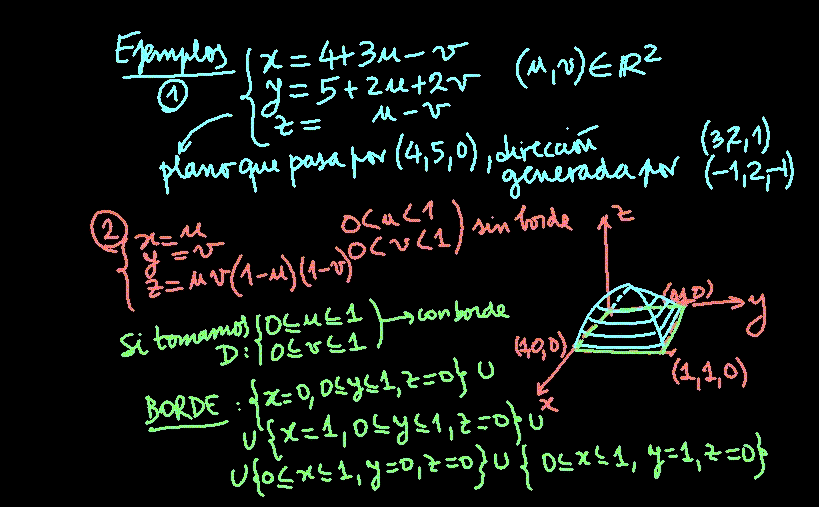 Ejemplos
① { x = 4+3u-v
y = 5+2u+2v (u,v) ∈ ℝ²
z = u-v
plano que pasa por (4,5,0), dirección generada por (3,2,1)
(-1,2,-1)
② { x = u
y = v
z = uv(1-u)(1-v)
0<u<1
0<v<1 ) sin borde
Si tomamos D: { 0≤u≤1
0≤v≤1 ) → con borde
BORDE : {x=0, 0≤y≤1, z=0} ∪
∪ {x=1, 0≤y≤1, z=0} ∪
∪ {0≤x≤1, y=0, z=0} ∪ { 0≤x≤1, y=1, z=0}
z
y
(1,0,0)
(1,1,0)
x